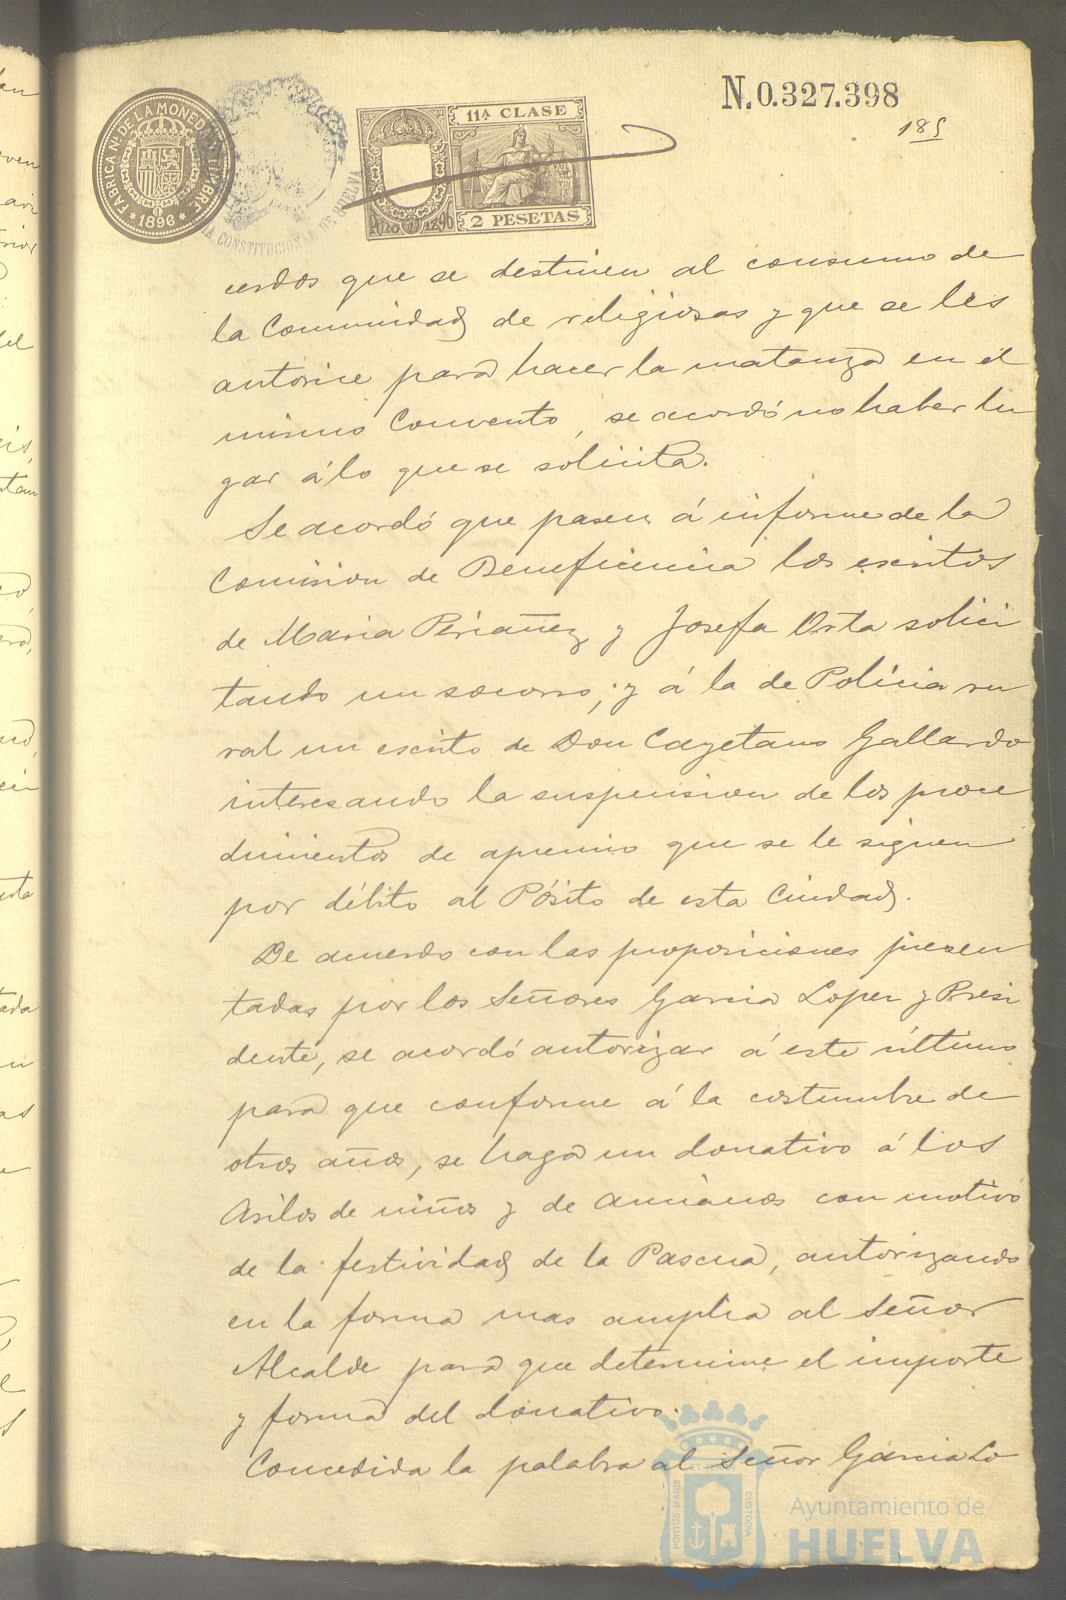 N.0.327.398
185
FÁBRICA Nal. DE LA MONEDA Y TIMBRE
*1896*
CONSTITUCIONAL DE HUELVA
11ª CLASE
Año D 1896
2 PESETAS
cerdos que se destinen al consumo de
la Comunidad de religiosas y que se les
autorice para hacer la matanza en el
mismo Convento, se acordó no haber lu
gar á lo que se solicita.
Se acordó que pasen á informe de la
Comision de Beneficencia los escritos
de Maria Periañez y Josefa Orta solici
tando un socorro; y á la de Policia ru
ral un escrito de Don Cayetano Gallardo
interesando la suspension de los proce
dimientos de apremio que se le siguen
por débito al Pósito de esta Ciudad.
De acuerdo con las proposiciones presen
tadas por los Señores Garcia Lopez y Presi
dente, se acordó autorizar á este último
para que conforme á la costumbre de
otros años, se haga un donativo á los
Asilos de niños y de Ancianos con motivo
de la festividad de la Pascua, autorizando
en la forma mas amplia al Señor
Alcalde para que determine el importe
y forma del donativo.
Concedida la palabra al Señor Garcia Lo
PORTUS MARIS
CUSTODIA
Ayuntamiento de
HUELVA